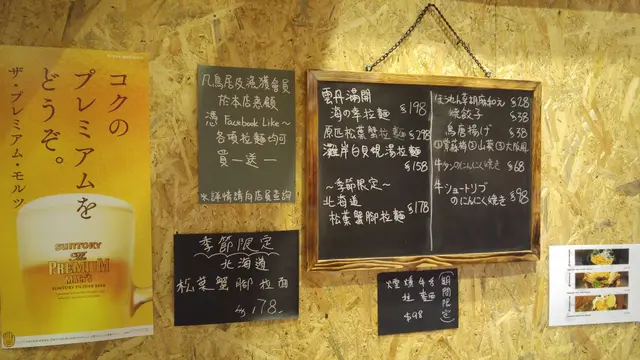 コクの
プレミアムを
どうぞ。
ザ・プレミアム・モルツ
SUNTORY
THE
PREMIUM
MALT'S
SUNTORY PREMIUM BEER
凡鳥居及漁獲會員
於本店惠顧
憑 Facebook Like～
各項拉麵均可
買一送一
※詳情請向店員查詢
季節限定
北海道
松葉蟹腳拉面
$178
雲丹滿開
海の幸拉麵 $198
原匹松葉蟹拉麵 $298
灘岸白貝蜆湯拉麵
$158
～季節限定～
北海道
松葉蟹腳拉麵 $178
ほうれん草胡麻和え $28
焼餃子 $38
鳥唐揚げ $38
牛タンのにんにく焼き $68
牛ショートリブ
のにんにく焼き $98
期間限定
$98